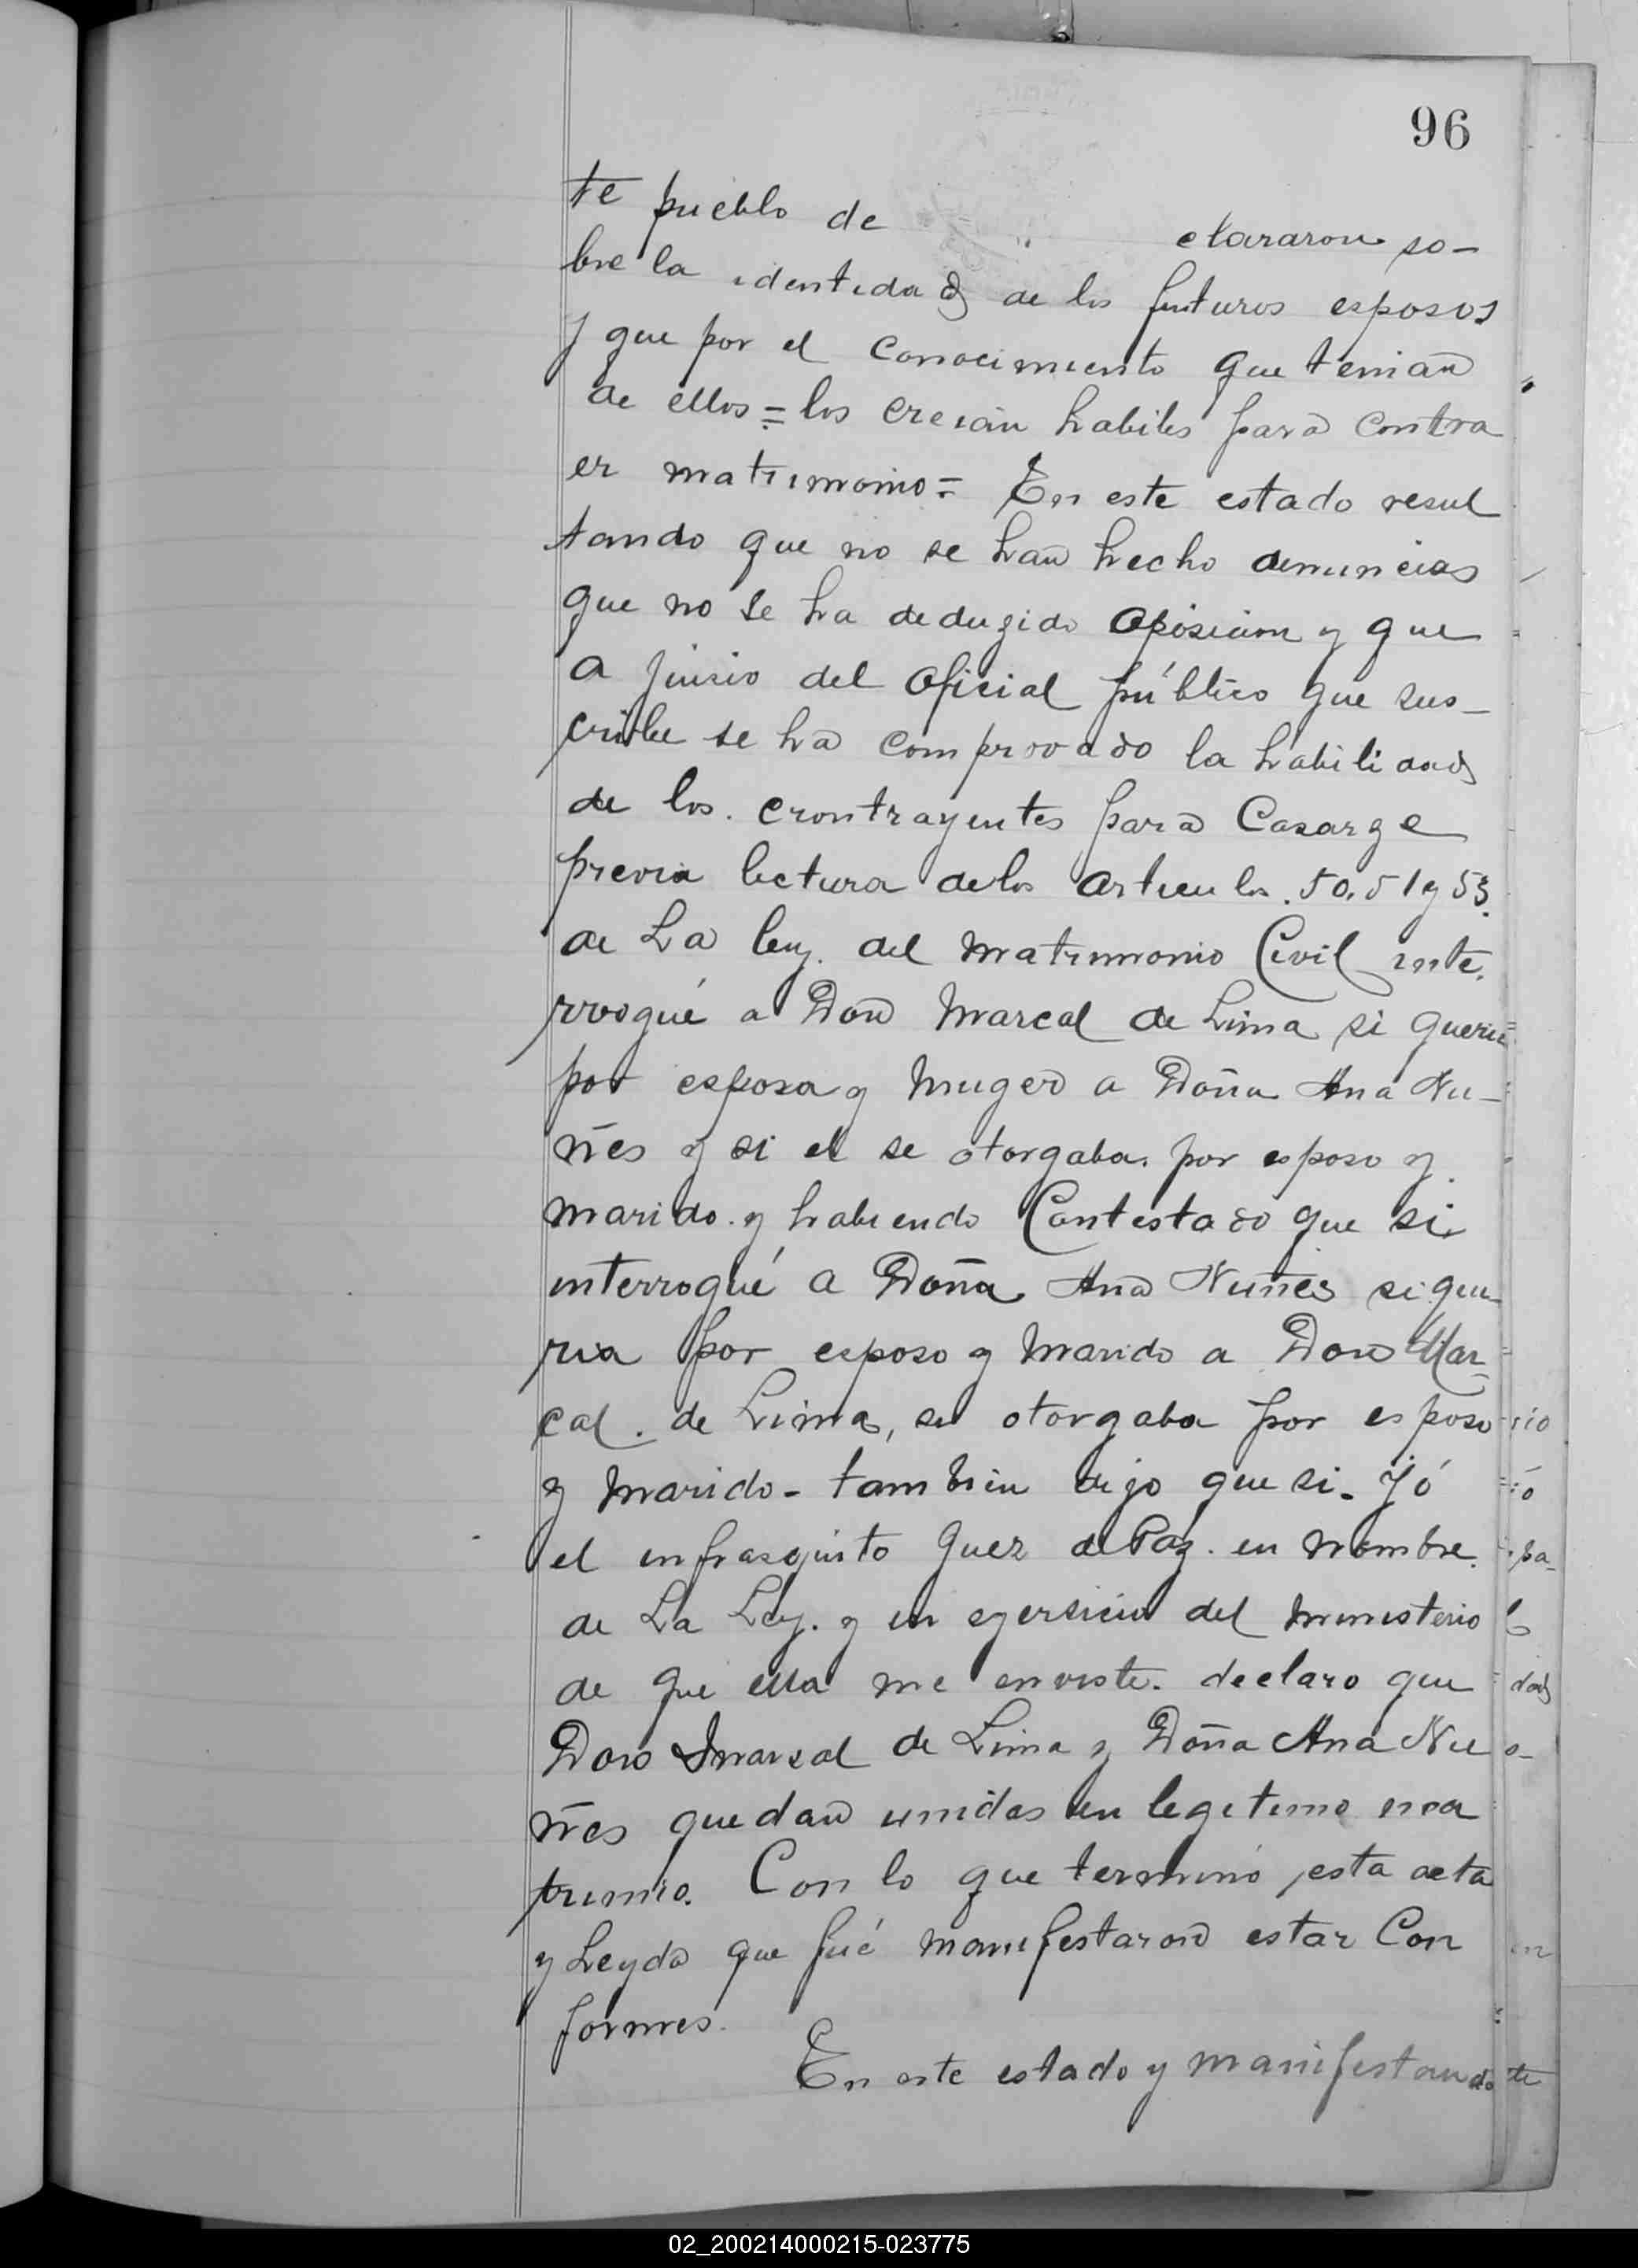 96
te pueblo de clararon so-
bre la identidad de los futuros esposos
y que por el conocimiento que tenian
de ellos = los creian habiles para contra
er matrimonio = En este estado resul
tando que no se han hecho denuncias
que no se ha deduzido oposicion y que
a juisio del oficial público que sus-
cribe se ha comprovado la habilidad
de los. crontrayentes para Casarge
previa lectura de los articulos. 50. 51 y 53.
de La ley. del matrimonio Civil inte.
rrogué a Don Marcal de Lima si queria
por esposa y muger a Doña Ana Nu-
ñes y si el se otorgaba. por esposo y.
marido. y habiendo Contestado que si
interrogué a Doña Ana Nuñes si que-
ria por esposo y marido a Don Mar-
cal. de Lima, se otorgaba por esposo
y marido - tambien dijo que si. Yó
el enfrasquito Juez de Paz. en nombre.
de La Ley. y en ejersicio del ministerio
de que ella me enviste. declaro que
Don Marsal de Lima y Doña Ana Nu
ñes quedan unidos en legitimo ma
trimio. Con lo que terminó esta acta
y Leyda que fué manifestaron estar Con
formes.
En este estado y manifestando
02_200214000215-023775